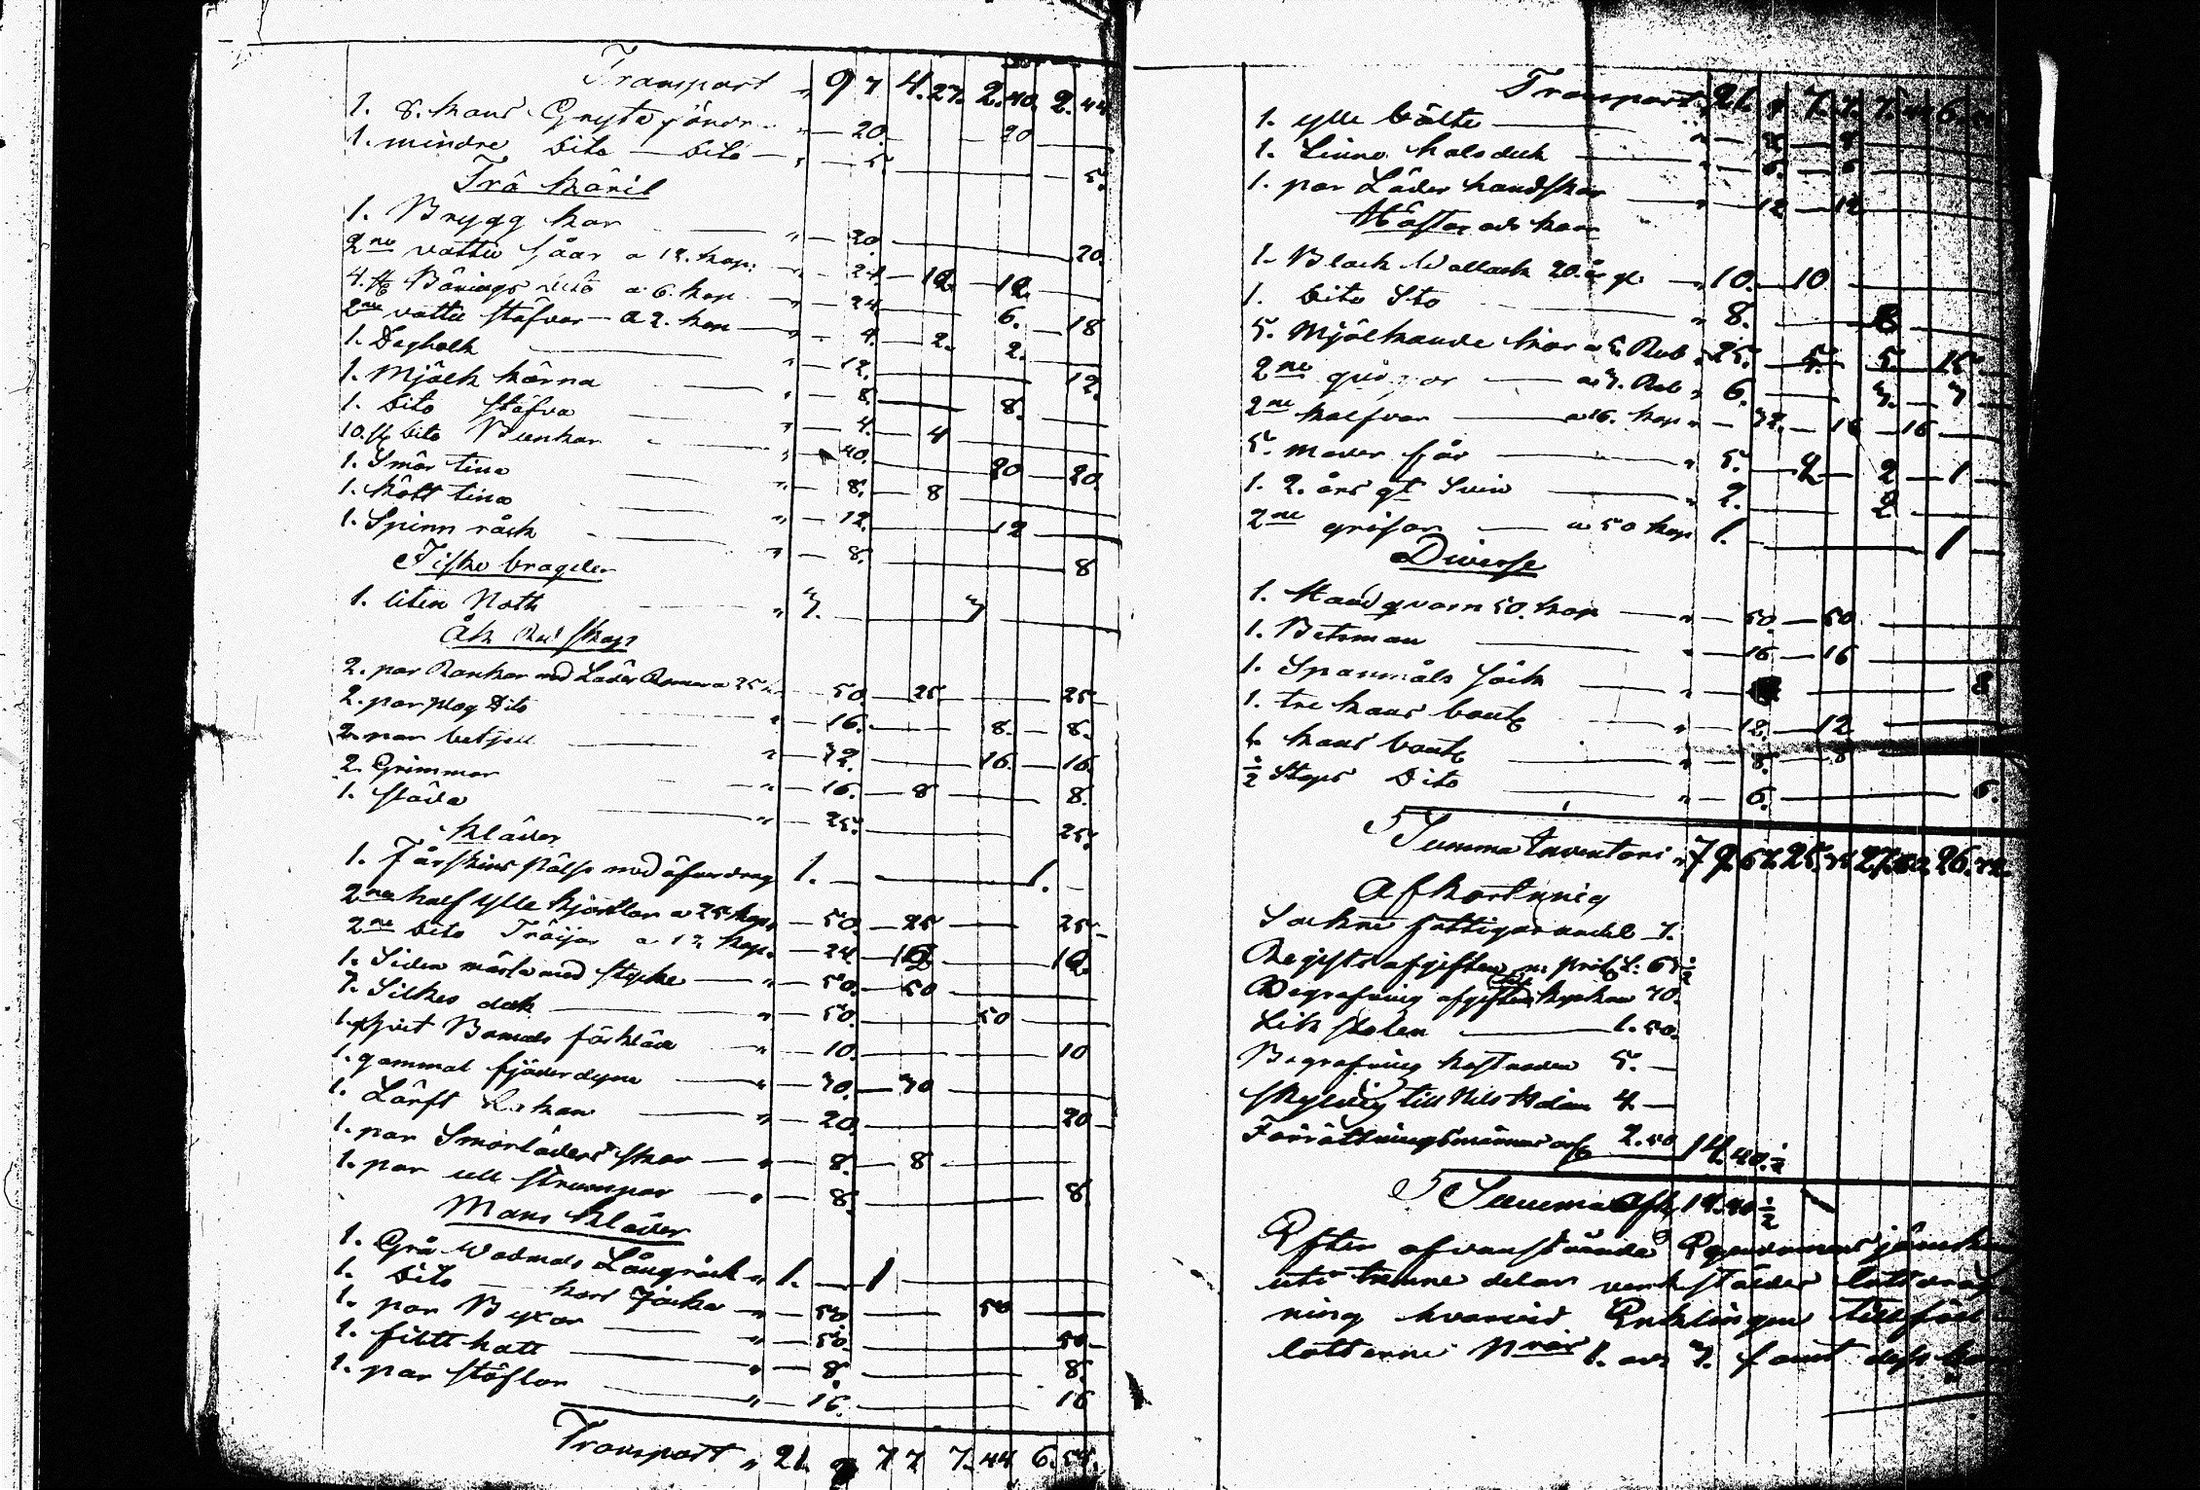 Transport " 9 7 4. 27. 2. 40. 2. 44
1. 8. kans Gryta " — 20. — 20 —
1. mindre dito — dito — " — 5. — 5.
Trä Käril
1. Brygg kar — " — 20. — 20.
2ne vattu såar a 12. kop: — 24 — 12 — 12. —
4. st Bärings a 6. kop " — 24. — 6. — 18
2ne vattu stäfvor — a 2. kop — " — 4. — 2. — 2. —
1. Degholk — " — 12. — 12.
1. Mjölk kärna — " — 8. — 8. —
1. dito stäfva — " — 4. — 4 —
10. st dito Bunkar — " — 40. — 20 — 20.
1. Smör tina — " — 8. — 8 —
1. Kött tina — " — 12. — 12 —
1. Spinn råck — " — 8. — 8
Fiske bragder
1. liten Noth — " 3. — 3 —
Åk Redskap
2. par Rankor med Läder a 25 — 50. — 25 — 25 —
2. par plog Dito — " — 16. — 8. — 8.
2. par betsell — " — 32. — 16. — 16.
2. Grimmor — " — 16. — 8 — 8.
1. släda — " — 25. — 25.
Kläder
1. Fårskins Päls med öfverdrag 1. — 1. —
2ne half ylle kjortlar a 25 kop. — 50. — 25 — 25 —
2ne dito Tröijor a 12 kop. — 24. — 12 — 12.
1. Siden mössa med stycke — " — 50. — 50 —
1. Silkes duk — " — 50. — 50 —
1. förkläde " — 10. — 10
1. gammal fjäderdyna — " — 30. — 30 —
1. Lärft Lakan — " — 20. — 20
1. par Smorläders skor — " — 8. — 8 —
1. par ull strumpor — " — 8. — 8.
Mans Kläder
1. Grå Vadmals Långråck " 1. — 1 —
1. dito — kort Jacka — " — 50. — 50 —
1. par Byxor — " — 50. — 50 —
1. filtt hatt — " — 8. — 8.
1. par stöflor — " — 16. — 16
Transport " 21. 9 7 7 7. 44 6. 54.
Transport " 21. 9 7. 7. 7. 44 6.
1. ylle bälte — " — 8 — 8
1. Linne halsduk — " — 6. — 6
1. par Läder handskar — " — 12 — 12
Hästar och kor
1. Black Wallack 20. år gl. — " 10. — 10 —
1. dito Sto — " 8. — 8 —
5. Mjölkande kor a 5. Rub " 25. — 5. — 5. — 15
2ne qvigor — a 3. Rub " 6. — 3. — 3
2ne kalfvar — a 16. kop " — 32. — 16 — 16 —
5. moder får — " 5. — 2 — 2 — 1
1. 2. års gl Svin — " 2. — 2
2ne grisar — a 50 kop 1. — 1 —
Diverse
1. Handqvarn 50. kop — " — 50. — 50 —
1. Betsman — " — 16 — 16 —
1. Spanmåls säck — " — 8
1. tre kans butl — " — 12. — 12 —
1. kans butl — " — 8. — 8 —
½ Stops Dito — " — 6. — 6.
Summa Inventarii " 79. 67. 25. 27. 26.
Afkortning
Sockne fattigas andel 1.
65½
Begrafning afgiften kyrkan 30.
Lik stolen — 1. 50.
Begrafning kostnaden 5. —
Skyldig till Nils 4 —
Förrättningsmännens arf 2. 50 14. 40. ½
Summa Afk. 14. 40 ½
Efter ofvanstående Egendomens
uti trenne delar verkstäldes lottdrag
ning hvarvid Enklingen tillföll
lotterne Nror 1. och 3. samt dess